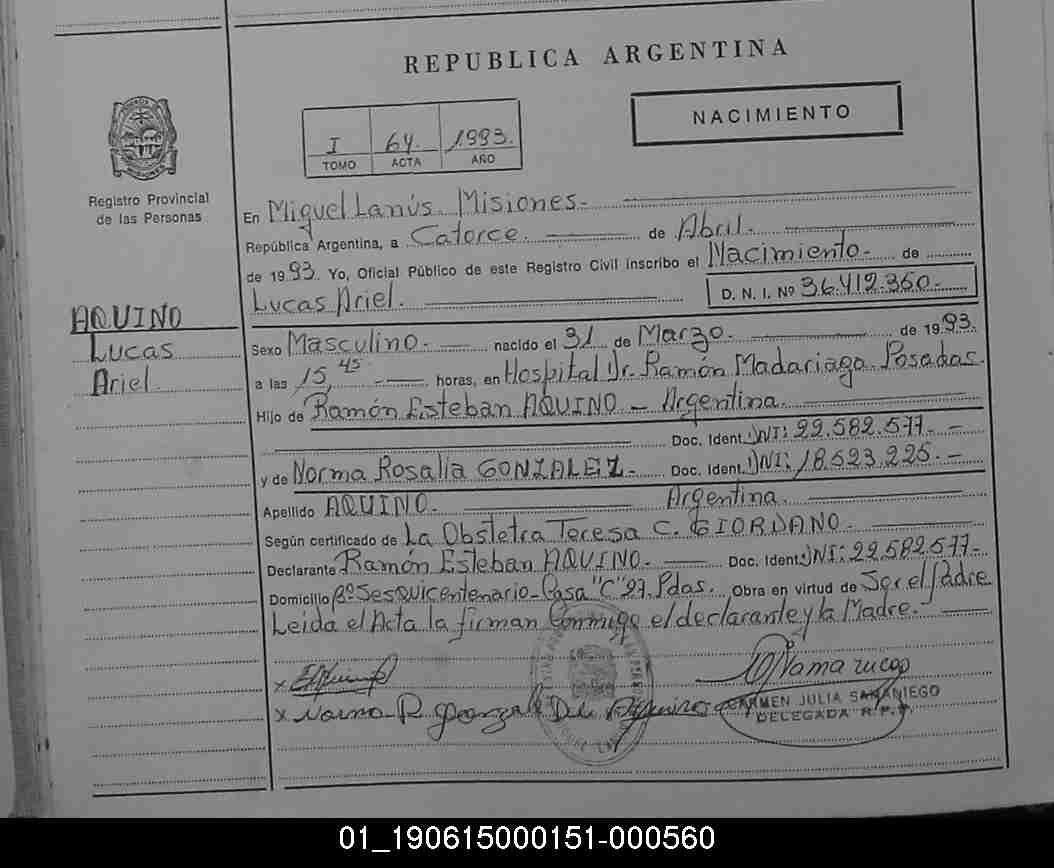 REPUBLICA ARGENTINA
NACIMIENTO
I 64. 1993.
TOMO ACTA AÑO
Registro Provincial
de las Personas
En Miguel Lanús. Misiones.-
República Argentina, a Catorce. de Abril.
de 1993. Yo, Oficial Público de este Registro Civil inscribo el Nacimiento- de
Lucas Ariel. D. N. I. Nº 36.412.360.-
AQUINO
Lucas
Ariel.
Sexo Masculino.- nacido el 31 de Marzo.- de 1993.
a las 15,45 horas, en Hospital Dr. Ramón Madariaga. Posadas.
Hijo de Ramón Esteban AQUINO - Argentina.
Doc. Ident. DNI: 22.582.577.-
y de Norma Rosalia GONZALEZ.- Doc. Ident. DNI: 18.523.225.-
Apellido AQUINO. Argentina.
Según certificado de La Obstetra Teresa C. GIORDANO.
Declarante Ramón Esteban AQUINO.- Doc. Ident. DNI: 22.582.577-
Domicilio Bº Sesquicentenario-Casa "C" 27. Pdas. Obra en virtud de Ser el Padre
Leida el Acta la firman Conmigo el declarante y la Madre.
x
x Norma R. De
CARMEN JULIA SAMANIEGO
DELEGADA R.P.P.
01_190615000151-000560